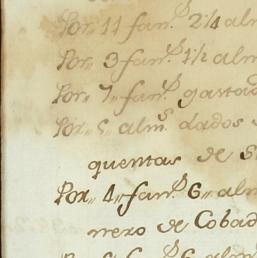 Por 11 fan.s 2 1/4 alm
Por 3 fan.s 1 1/2 alm
Por 7 fan.s gastad
Por alm.s dados
quentas de S
Por 4 fan.s 6 alm
nrero de Cobad